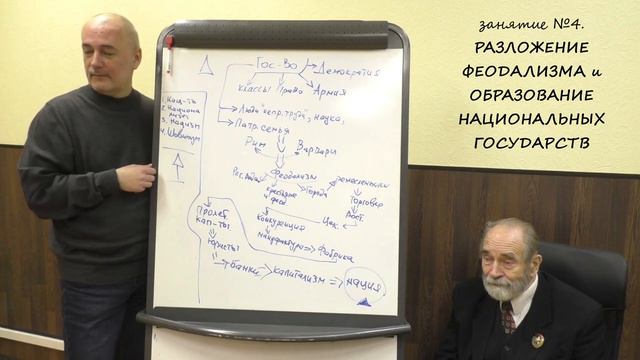 занятие №4.
РАЗЛОЖЕНИЕ
ФЕОДАЛИЗМА и
ОБРАЗОВАНИЕ
НАЦИОНАЛЬНЫХ
ГОСУДАРСТВ
Гос-во
Демократия
классы Право Армия
Люди "непр. труда", наука,
Патр. семья
Рим Варвары
Феодализм
крестьяне
Города
ремесленники
Торговля
Цех.
конкуренция
мануфактура Фабрика
Пролет.
кап-ты
Юристы
банки капитализм нация
3. Нацизм